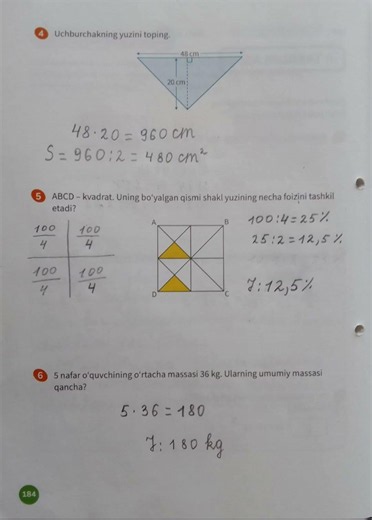 4 Uchburchakning yuzini toping.
48 cm
20 cm
48 · 20 = 960 cm
S = 960 : 2 = 480 cm²
5 ABCD – kvadrat. Uning bo'yalgan qismi shakl yuzining necha foizini tashkil
etadi?
100/4 100/4
100/4 100/4
A B
D C
100 : 4 = 25 %
25 : 2 = 12,5 %
J : 12,5 %
6 5 nafar o'quvchining o'rtacha massasi 36 kg. Ularning umumiy massasi
qancha?
5 · 36 = 180
J : 180 kg
184